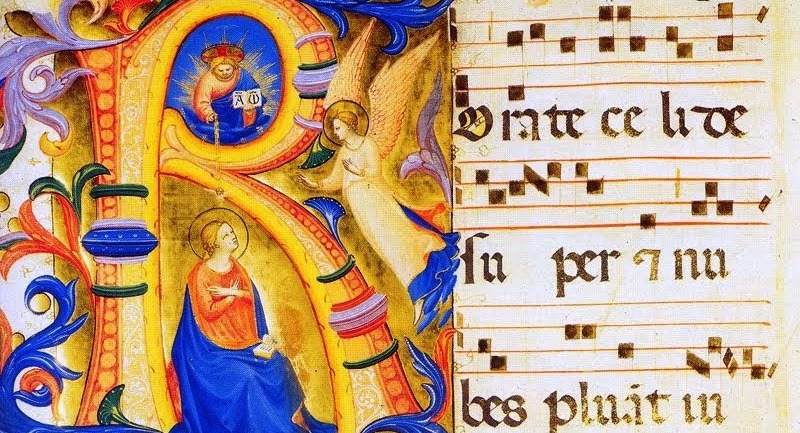 A ω
R Orate ce li de
su per ⁊ nu
bes pluāt iu